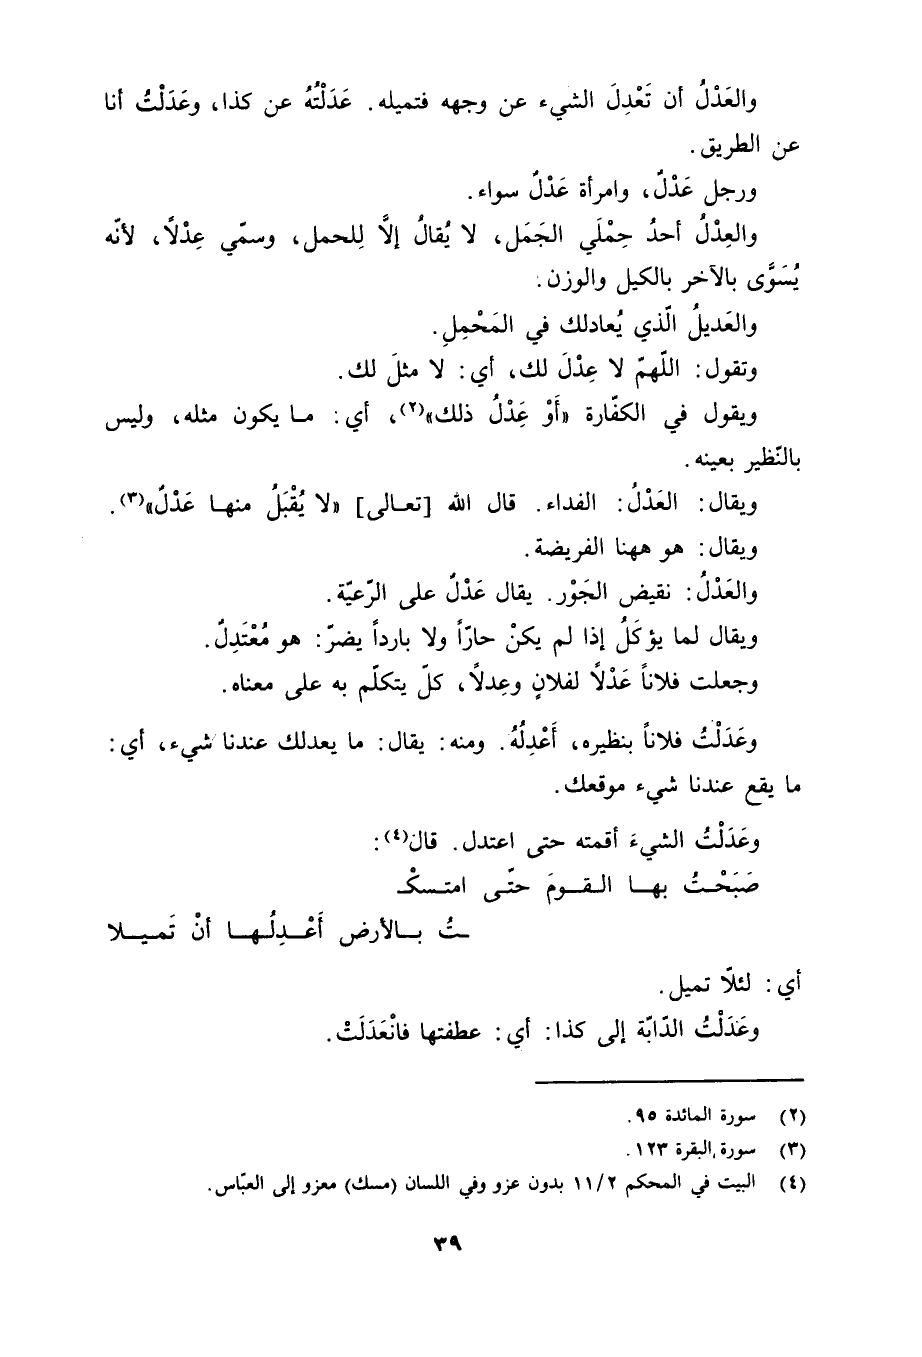 والعَدْلُ أن تَعْدِلَ الشيء عن وجهه فتميله. عَدَلْتُهُ عن كذا، وعَدَلْتُ أنا
عن الطريق.
ورجل عَدْلٌ، وامرأة عَدْلٌ سواء.
والعِدْلُ أحدُ حِمْلَي الجَمَل، لا يُقالُ إلَّا لِلحمل، وسمّي عِدْلاً، لأنّه
يُسَوَّى بالآخر بالكيل والوزن.
والعَديلُ الّذي يُعادلك في المَحْمِلِ.
وتقول: اللّهمّ لا عِدْلَ لك، أي: لا مثلَ لك.
ويقول في الكفّارة «أَوْ عَِدْلُ ذلك»(٢)، أي: ما يكون مثله، وليس
بالنّظير بعينه.
ويقال: العَدْلُ: الفداء. قال الله [تعالى] «لا يُقْبَلُ منها عَدْلٌ»(٣).
ويقال: هو ههنا الفريضة.
والعَدْلُ: نقيض الجَوْر. يقال عَدْلٌ على الرّعيّة.
ويقال لما يؤكَلُ إذا لم يكنْ حارّاً ولا بارداً يضرّ: هو مُعْتَدِلٌ.
وجعلت فلاناً عَدْلاً لفلانٍ وعِدلاً، كلّ يتكلّم به على معناه.
وعَدَلْتُ فلاناً بنظيره، أَعْدِلُهُ. ومنه: يقال: ما يعدلك عندنا شيء، أي:
ما يقع عندنا شيء موقعك.
وعَدَلْتُ الشيءَ أقمته حتى اعتدل. قال(٤):
صَبَحْتُ بها القومَ حتّى امتسكْـ
ـتُ بالأرض أَعْدِلُها أنْ تَميلا
أي: لئلّا تميل.
وعَدَلْتُ الدّابّة إلى كذا: أي: عطفتها فانْعَدَلَتْ.
(٢) سورة المائدة ٩٥.
(٣) سورة البقرة ١٢٣.
(٤) البيت في المحكم ١١/٢ بدون عزو وفي اللسان (مسك) معزو إلى العبّاس.
٣٩